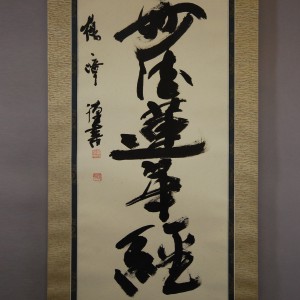 妙法蓮華經
謹書